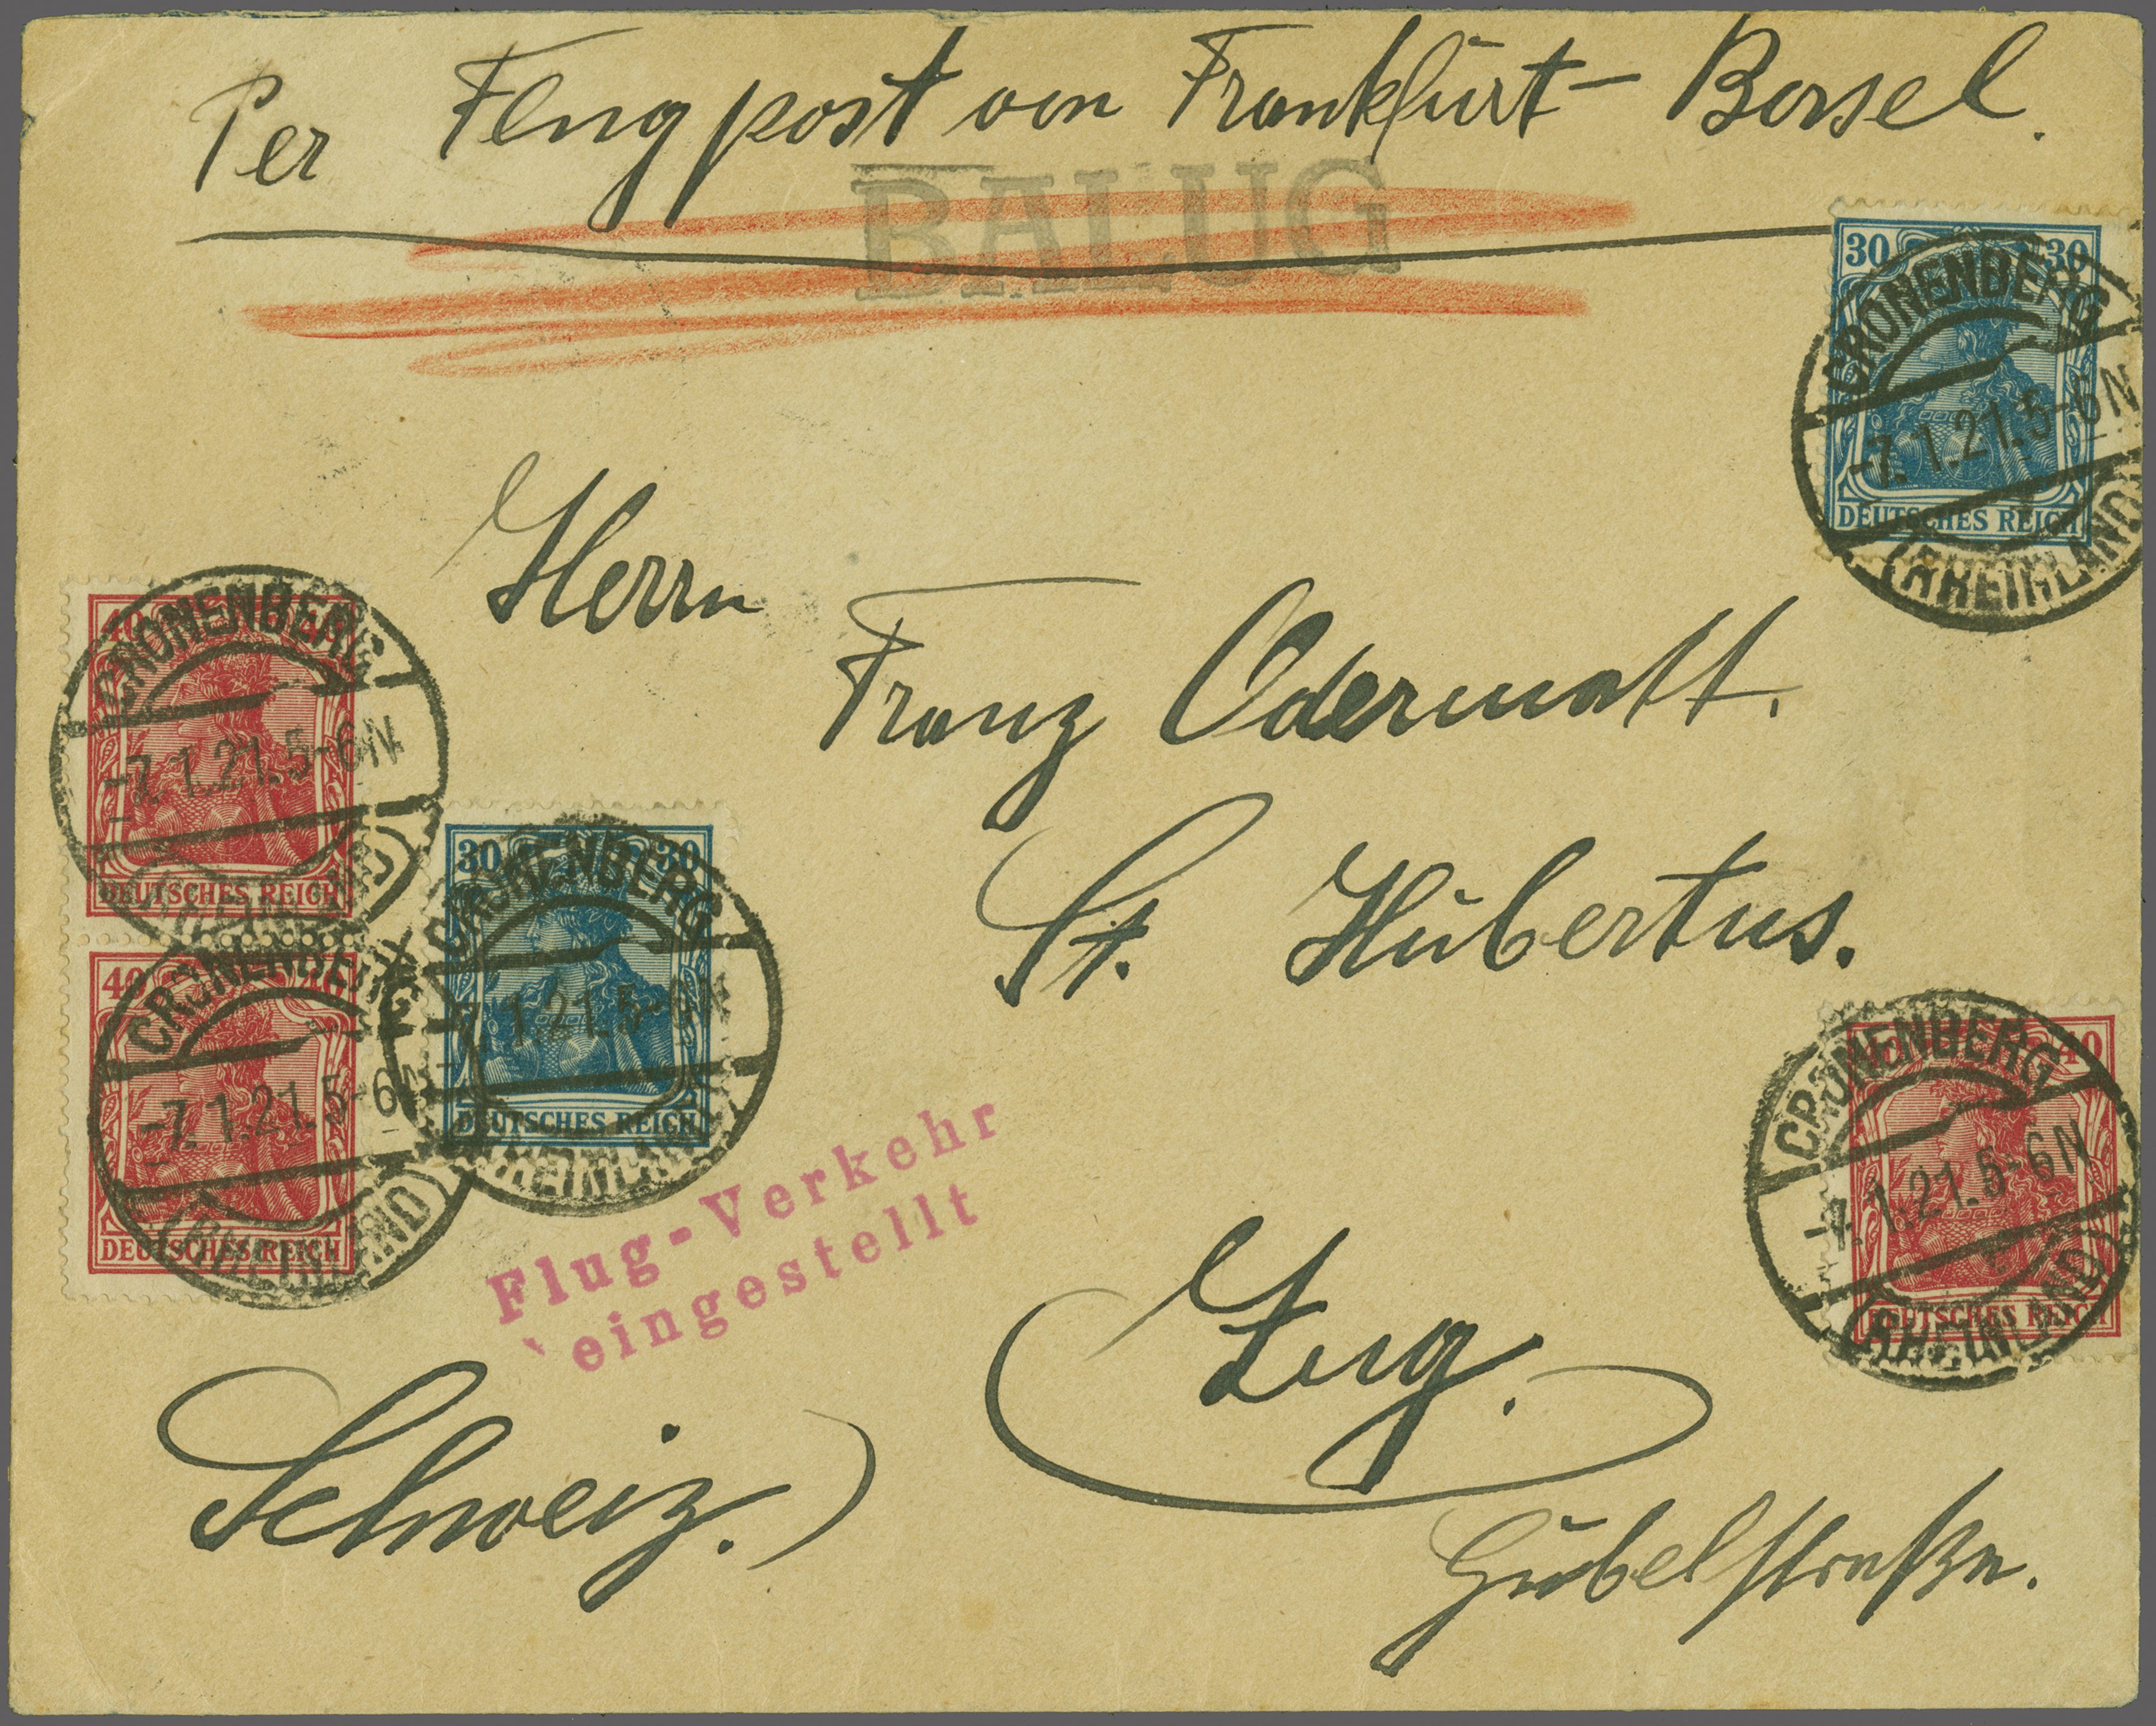 Per Flugpost von Frankfurt – Basel.
BALUG
30 30
CRONENBERG
-7.1.21.5-6N
(RHEINLAND)
DEUTSCHES REICH
Herrn
Franz Odermatt.
St. Hubertus.
40
CRONENBERG
-7.1.21.5-6N
DEUTSCHES REICH
30 30
CRONENBERG
7.1.21.5-6N
DEUTSCHES REICH
(RHEINLAND)
40
CRONENBERG
-7.1.21.5-6N
(RHEINLAND)
DEUTSCHES REICH
40
CRONENBERG
-7.1.21.5-6N
(RHEINLAND)
DEUTSCHES REICH
Flug-Verkehr
eingestellt
Zug.
Schweiz.)
Gubelstraße.